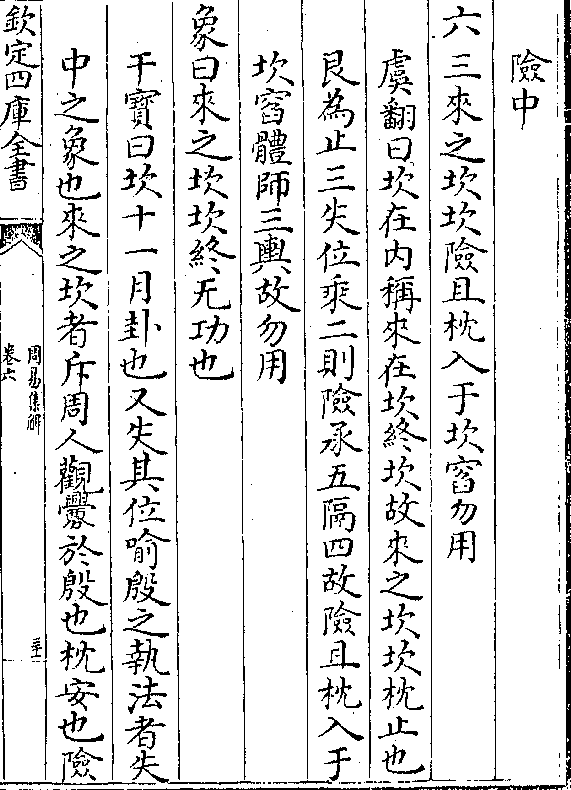 險中
六三來之坎坎險且枕入于坎窞勿用
虞翻曰坎在内稱來在坎終坎故來之坎坎枕止也
艮為止三失位乘二則險承五隔四故險且枕入于
坎窞體師三輿故勿用
象曰來之坎坎終无功也
干寶曰坎十一月卦也又失其位喻殷之執法者失
中之象也來之坎者斥周人觀釁於殷也枕安也險
欽定四庫全書
周易集解
卷六